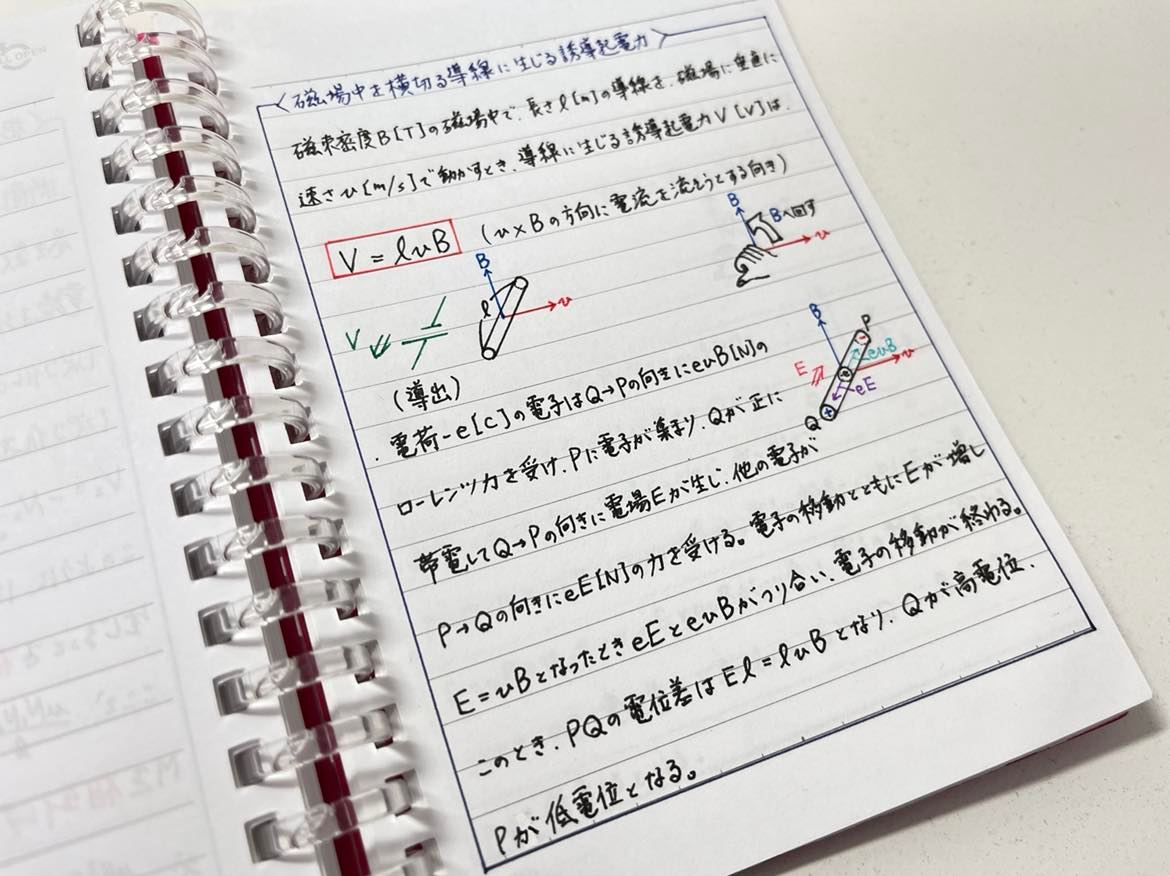 磁場中を横切る導線に生じる誘導起電力
磁束密度B[T]の磁場中で、長さl[m]の導線を、磁場に垂直に
速さv[m/s]で動かすとき、導線に生じる誘導起電力V[V]は、
V = lvB
(v×Bの方向に電流を流そうとする向き)
B
l
v
V
B
Bへ回す
v
(導出)
・電荷-e[C]の電子はQ→Pの向きにevB[N]の
ローレンツ力を受け、Pに電子が集まり、Qが正に
帯電してQ→Pの向きに電場Eが生じ、他の電子が
P→Qの向きにeE[N]の力を受ける。電子の移動とともにEが増し
E=vBとなったときeEとevBがつり合い、電子の移動が終わる。
このとき、PQの電位差はEl=lvBとなり、Qが高電位、
Pが低電位となる。
B
P
evB
v
E
eE
Q